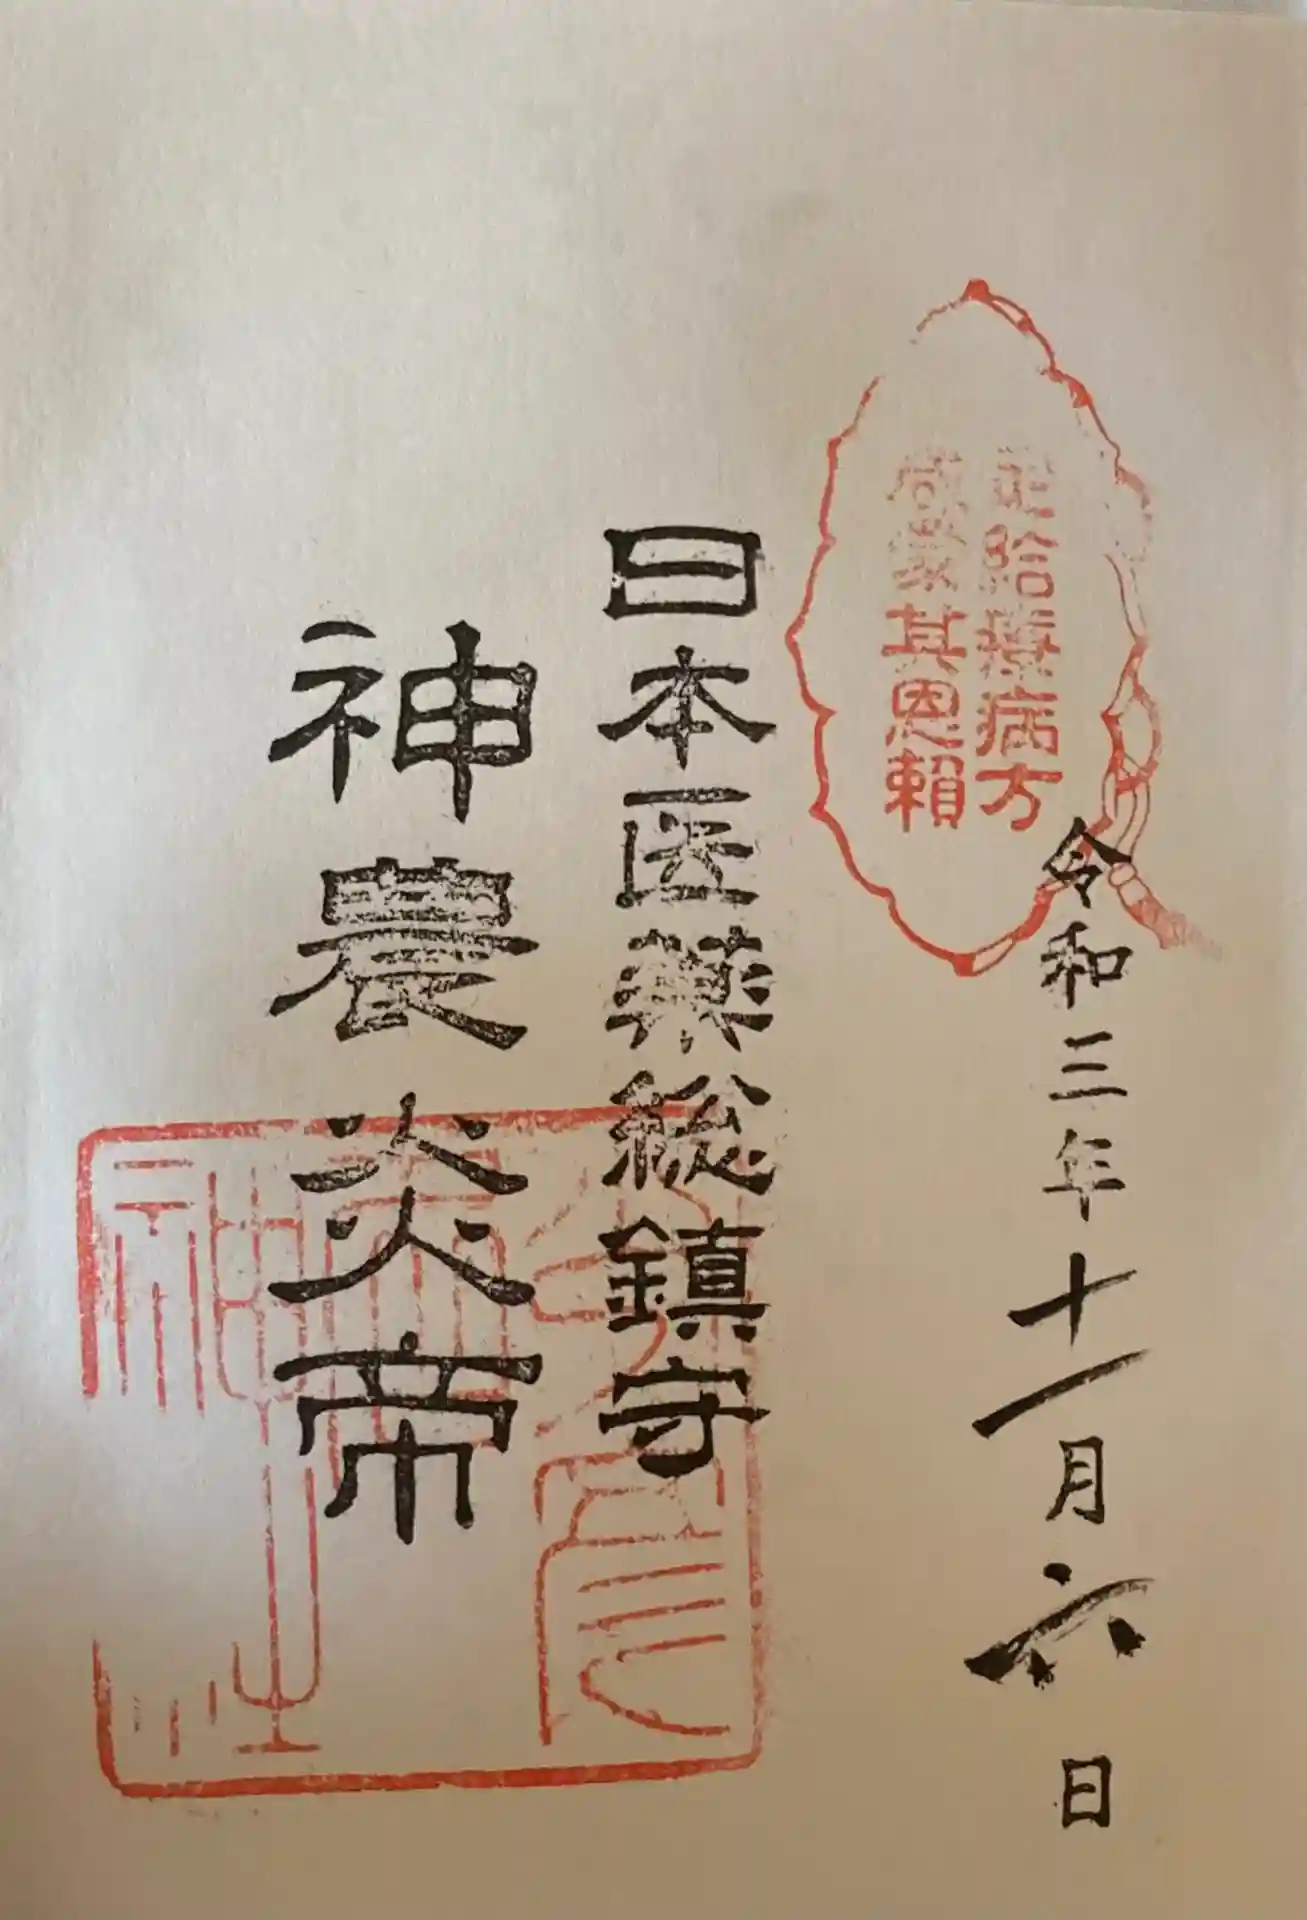 定給療病方
咸蒙其恩賴
令和三年十一月六日
日本医薬総鎮守
神農炎帝